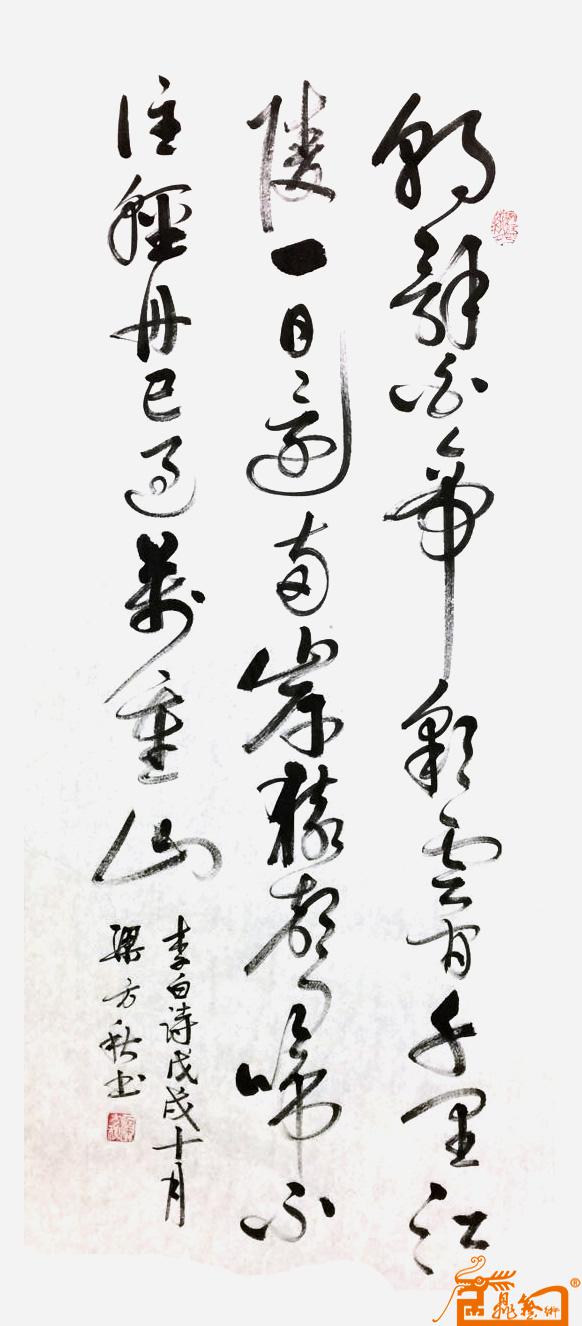 朝辭白帝彩雲間千里江
陵一日還兩岸猿聲啼不
住輕舟已過萬重山
李白詩戊戌十月
梁方秋书